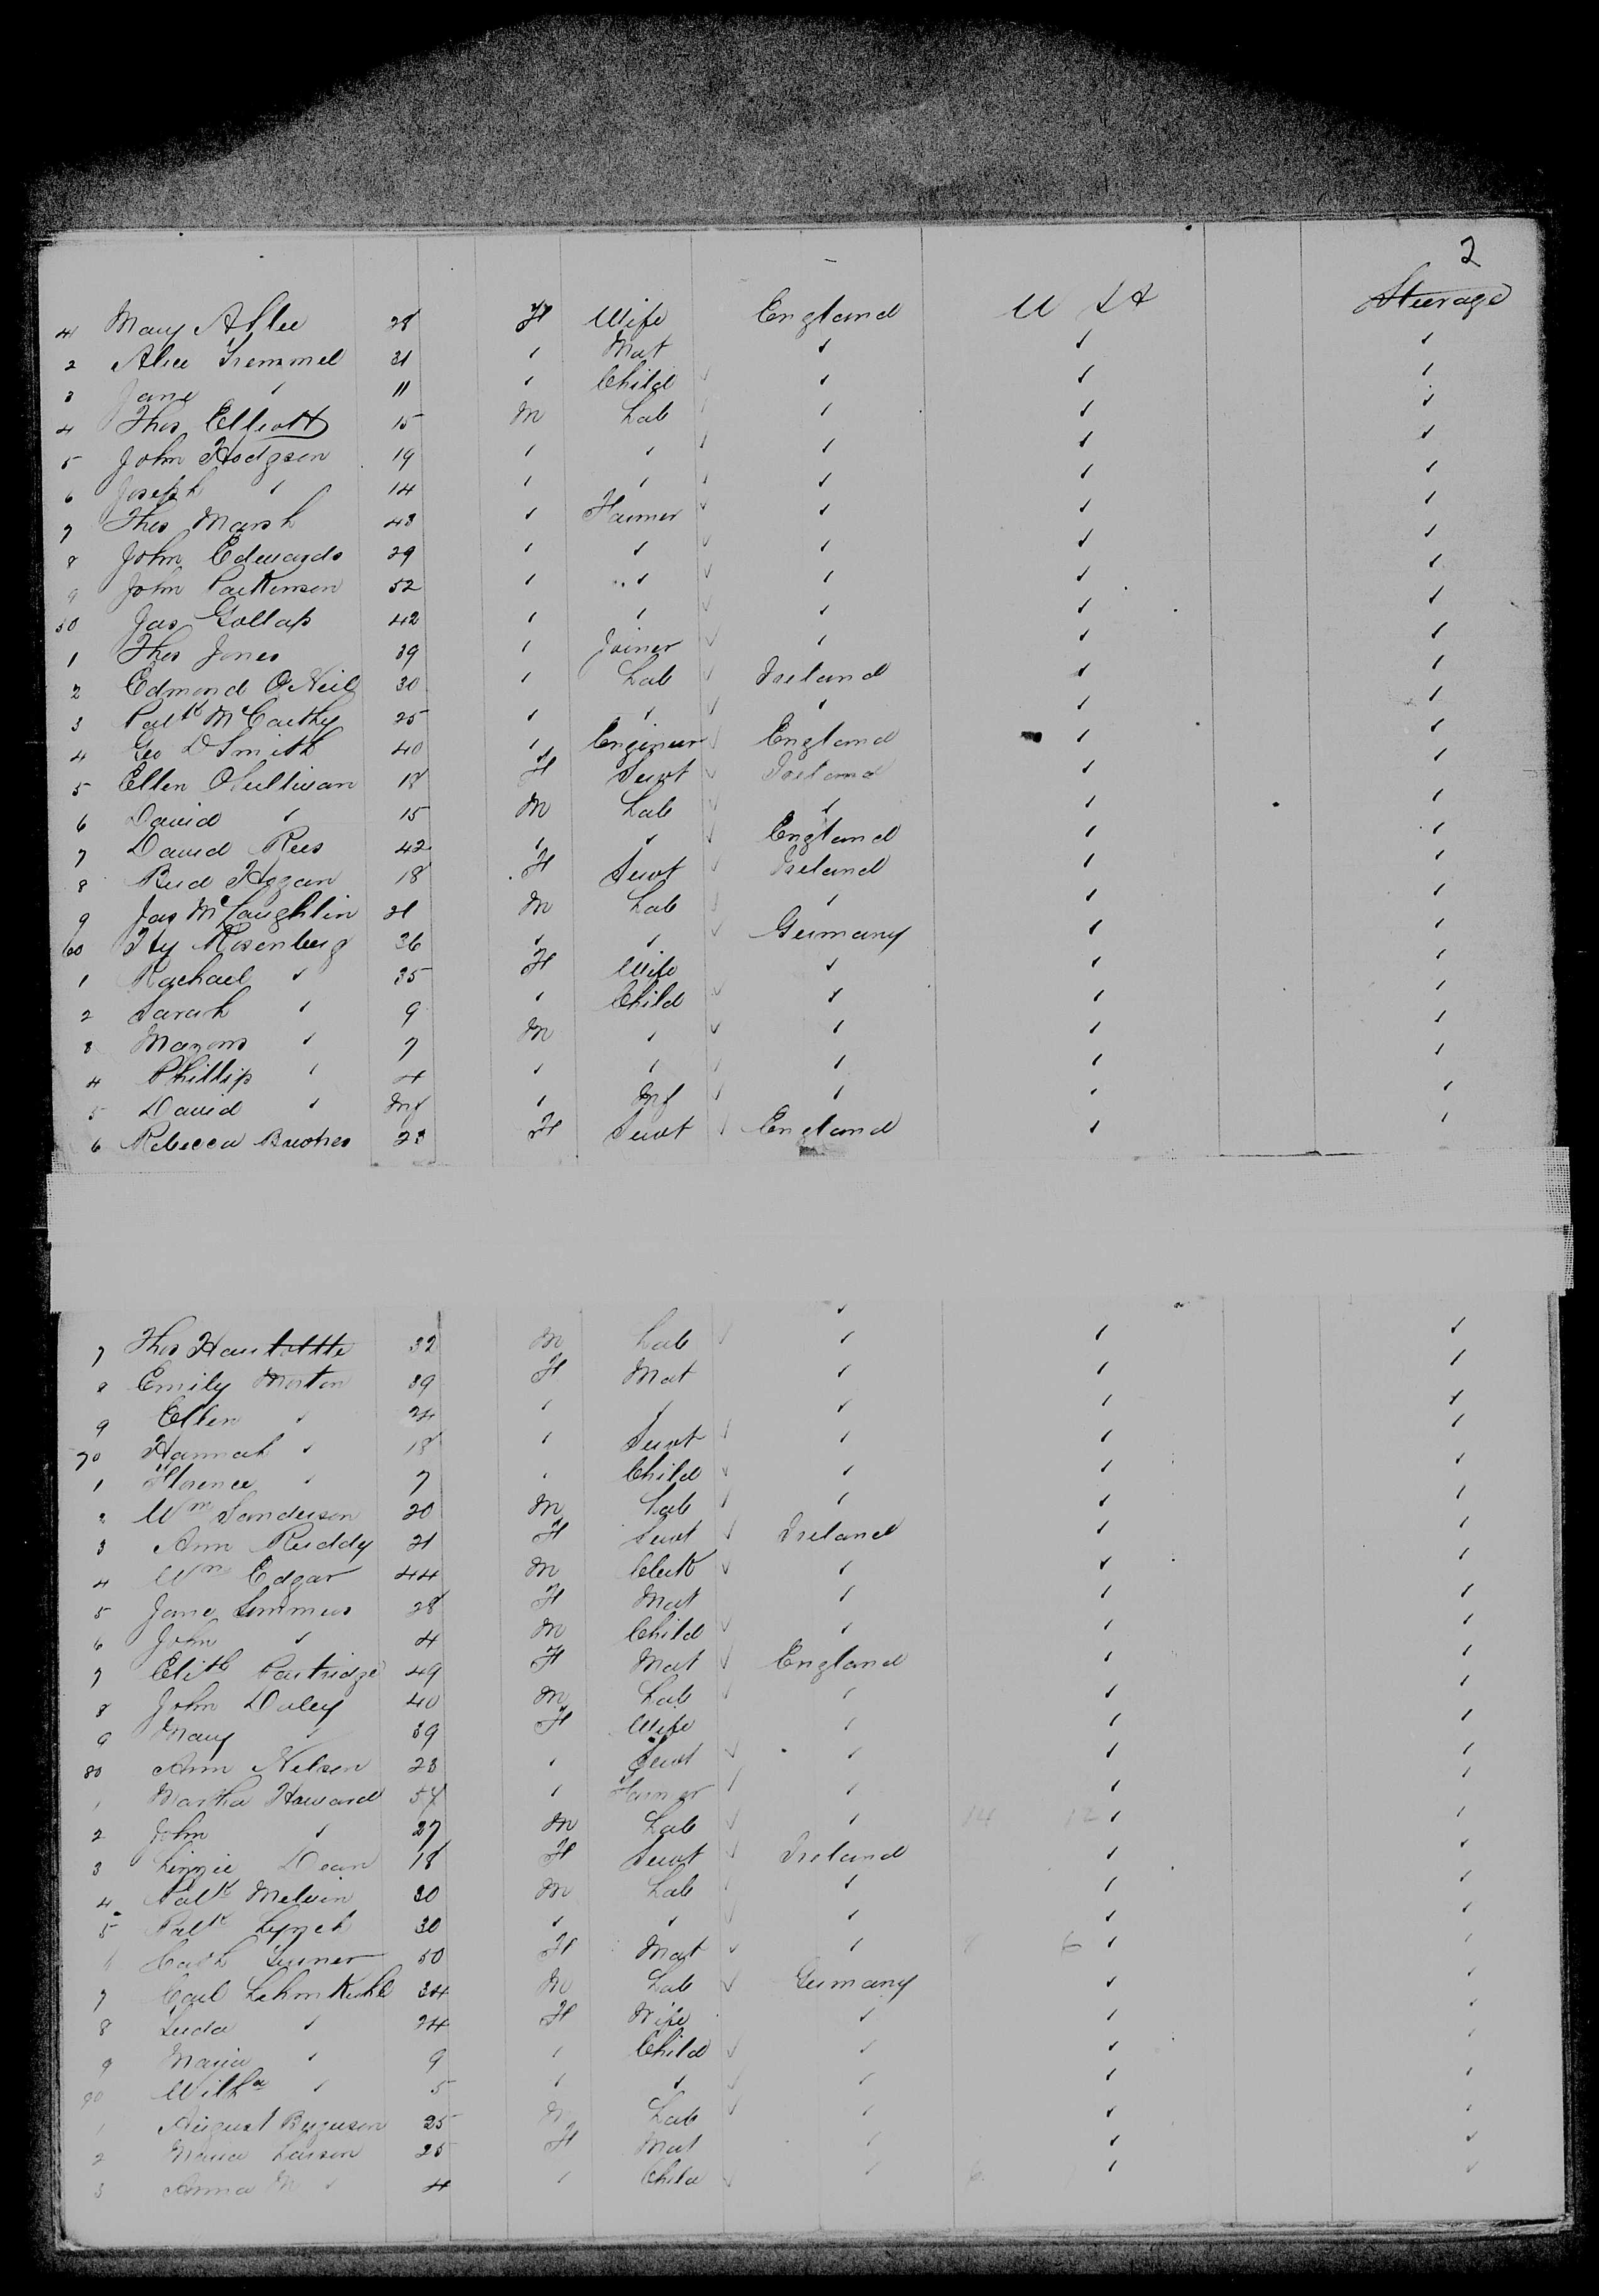 2
4 Mary Allen 28 F Wife England U St Steerage
2 Alice Tremmel 31 " Mat " " "
3 Jane " 11 " Child " " "
4 Thos Elliott 15 M Lab " " "
5 John Hodgson 19 " " " " "
6 Joseph " 14 " " " " "
7 Thos Marsh 43 " Farmer " " "
8 John Edwards 29 " " " " "
9 John Parkinson 52 " " " " "
50 Jas Gollap 42 " " " " "
1 Thos Jones 39 " Joiner " " "
2 Edmond O'Neil 30 " Lab Ireland " "
3 Patk McCarthy 25 " " " " "
4 Geo D Smith 40 " Engineer England " "
5 Ellen OSullivan 18 F Servt Ireland " "
6 David " 15 M Lab " " "
7 David Rees 42 " " England " "
8 Brid Hogan 18 F Servt Ireland " "
9 Jas McLaughlin 21 M Lab " " "
60 Hy Rosenberg 36 " " Germany " "
1 Rachael " 35 F Wife " " "
2 Sarah " 9 " Child " " "
3 " 7 M " " " "
4 Phillip " 4 " " " " "
5 David " Inf " Inf " " "
6 Rebecca 23 F Servt England " "
7 Thos 32 M Lab " " "
8 Emily Morton 39 F Mat " " "
9 Ellen " 24 " " " " "
70 Hannah " 18 " Servt " " "
1 Florence " 7 " Child " " "
2 Wm Sanderson 20 M Lab " " "
3 Ann Ruddy 21 F Servt Ireland " "
4 Wm Edgar 44 M Clerk " " "
5 Jane 28 F Mat " " "
6 John " 4 M Child " " "
7 Elith Partridge 49 F Mat England " "
8 John Daley 40 M Lab " " "
9 Mary " 39 F Wife " " "
80 Ann Nelson 23 " Servt " " "
1 Martha Howard 54 " Farmer " " "
2 John " 27 M Lab " 14 12 " "
3 Lizzie Dean 18 F Servt Ireland " "
4 Patk Melvin 30 M Lab " " "
5 Patk Lynch 30 " " " " "
6 Cath 50 F Mat " 8 6 " "
7 Carl Lehmkuhl 34 M Lab Germany " "
8 " 24 F Wife " " "
9 Maria " 9 " Child " " "
90 Wilha " 5 " " " " "
1 August 25 M Lab " " "
2 Maria Larson 25 F Mat " " "
3 Anna M " 4 " Child " 6 " "